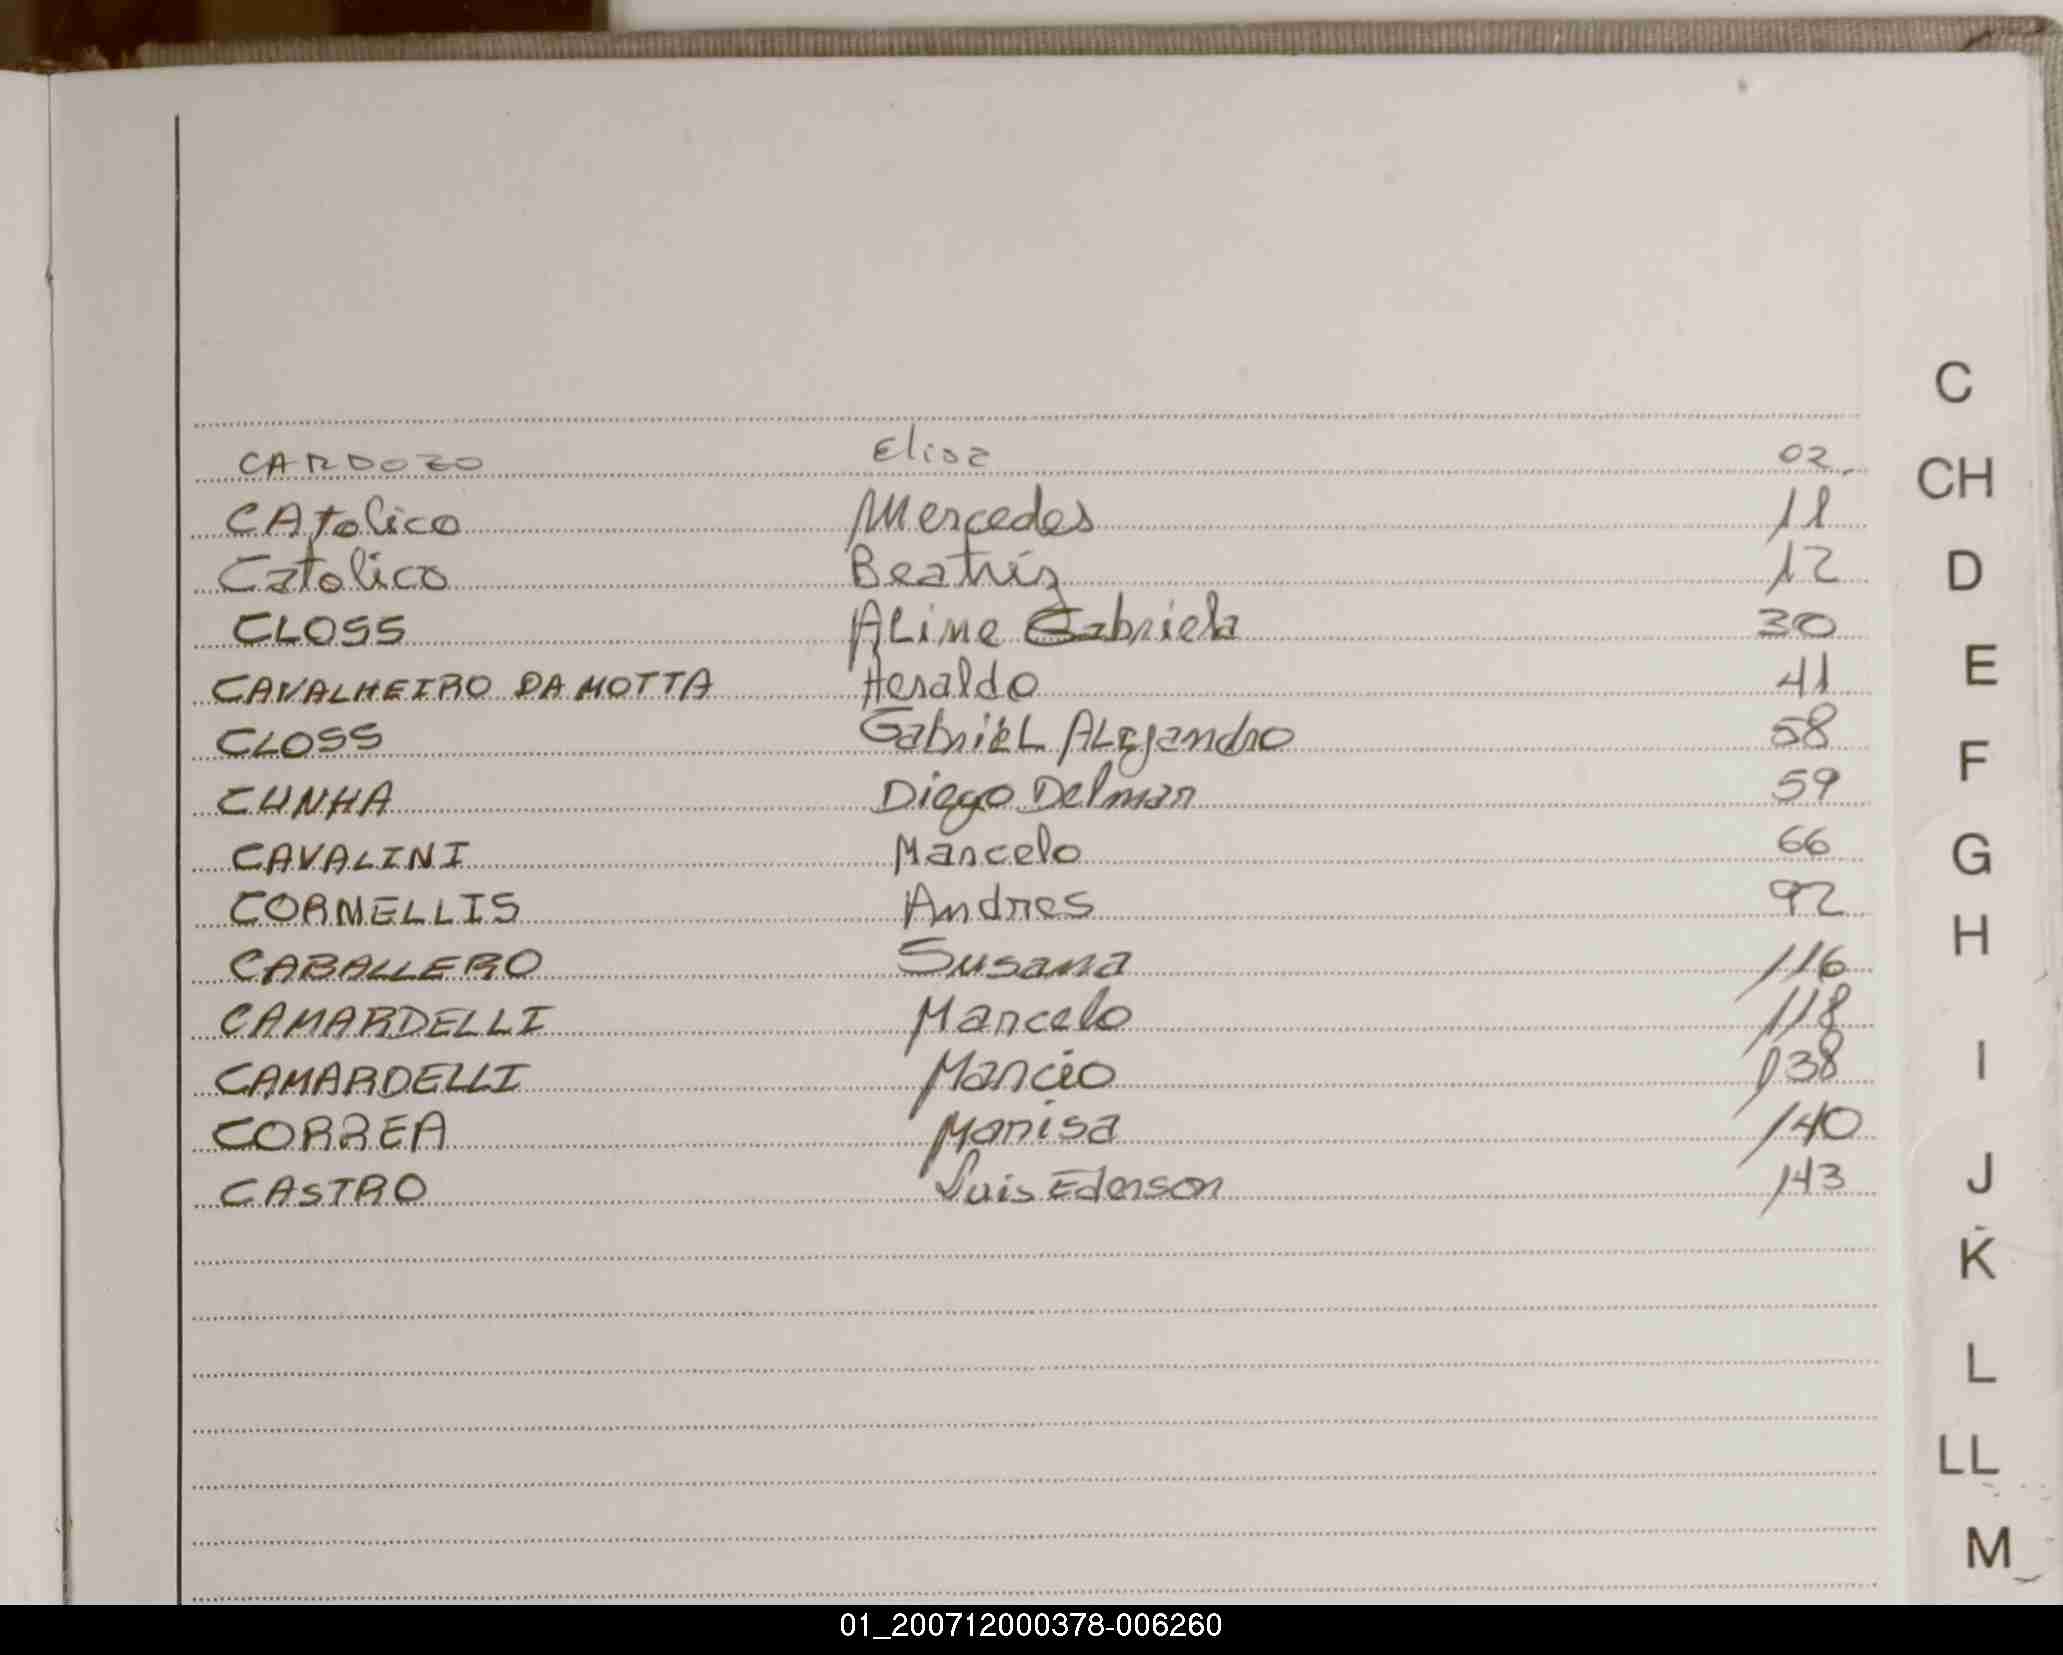 C
CARDOZO Elisa 02
CH
CAtolico Mercedes 11
Catolico Beatriz 12
D
CLOSS ALine Gabriela 30
CAVALHEIRO DA MOTTA Heraldo 41
E
CLOSS GabriEL ALejandro 58
F
CUNHA Diego Delmar 59
CAVALINI Marcelo 66
G
CORNELLIS Andres 92
H
CABALLERO Susana 116
CAMARDELLI Marcelo 118
I
CAMARDELLI Marcio 138
CORREA Marisa 140
J
CASTRO Luis Ederson 143
K
L
LL
M
01_200712000378-006260